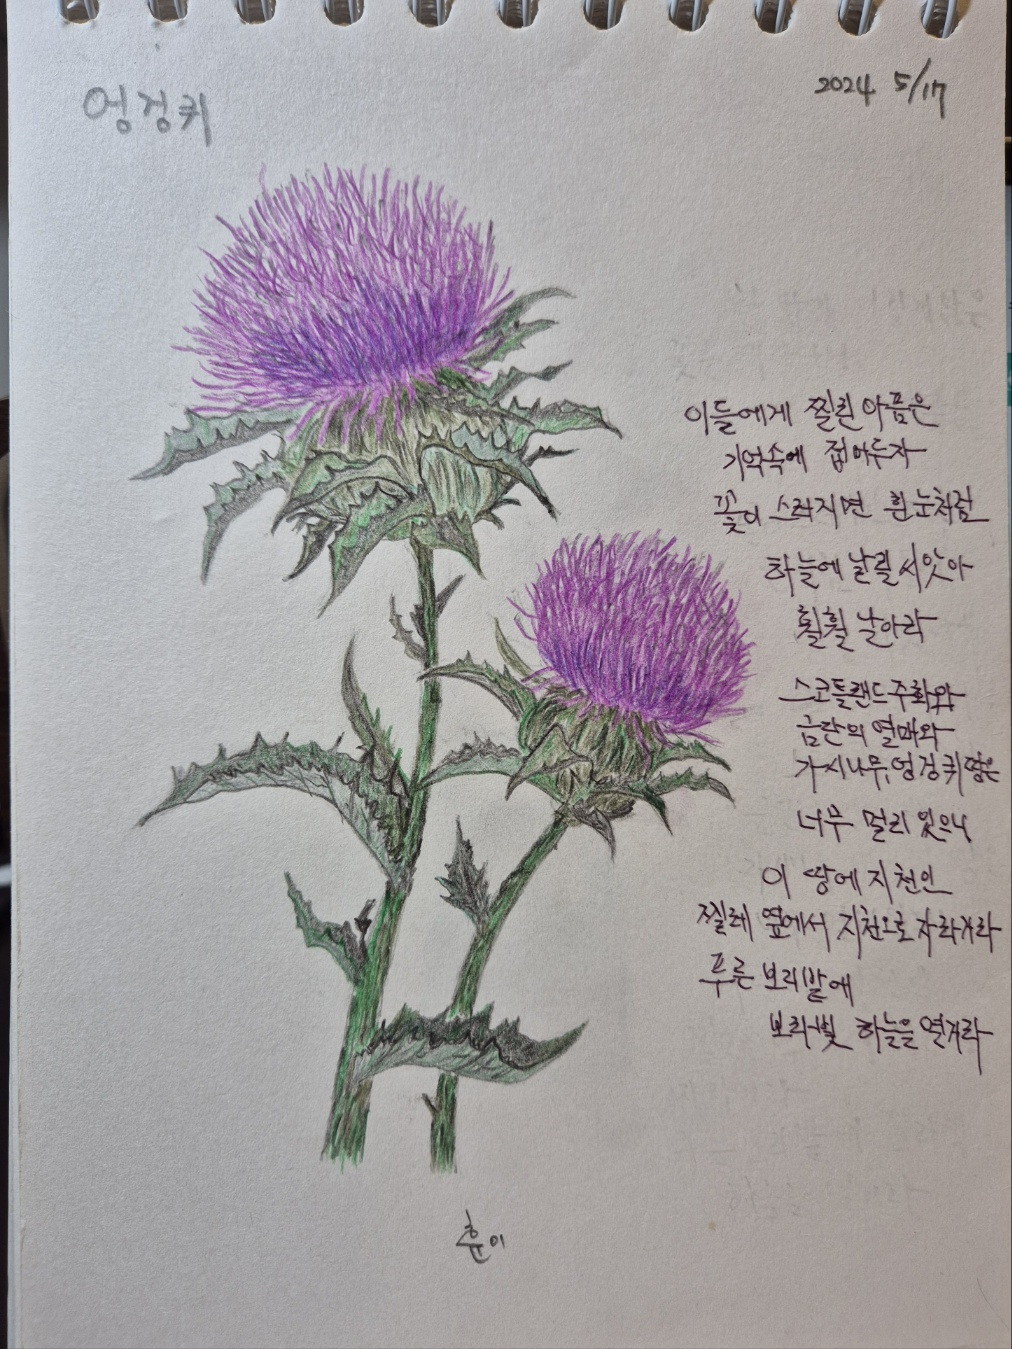 엉겅퀴
2024 5/17
이들에게 찔린 아픔은
기억속에 접어두자
꽃이 스러지면 흰눈처럼
하늘에 날릴 씨앗아
훨훨 날아라
스코틀랜드 주화와
금관의 열매와
가시나무, 엉겅퀴 땅은
너무 멀리 있으니
이 땅에 지천인
찔레 옆에서 지천으로 자라거라
푸른 보리밭에
보라빛 하늘을 열거라
훈이